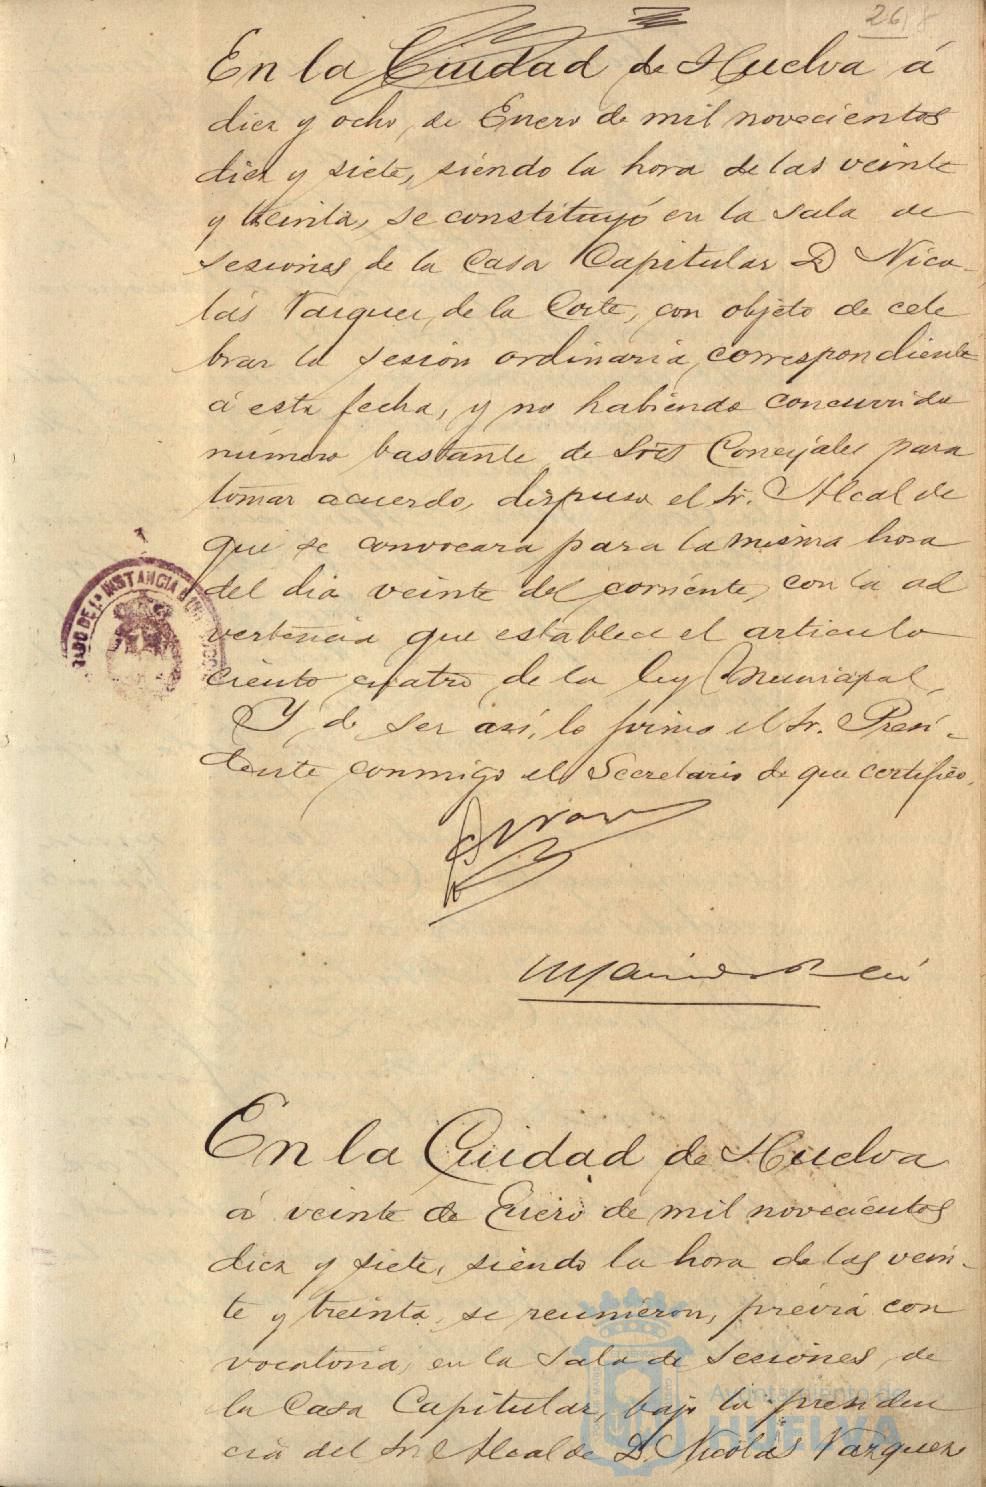 26
En la Ciudad de Huelva á
diez y ocho, de Enero de mil novecientos
diez y siete, siendo la hora de las veinte
y treinta, se constituyó en la sala de
sesiones de la Casa Capitular D Nico-
lás Vazquez, de la Corte, con objeto de cele
brar la sesión ordinaria, correspondiente
á esta fecha, y no habiendo concurrido
número bastante de Sres Concejales para
tomar acuerdo, dispuso el Sr. Alcalde
que se convocara para la misma hora
del dia veinte del corriente, con la ad
vertencia que establece el articulo
ciento cuatro de la ley Municipal.
Y de ser así, lo firma el Sr. Presi-
dente conmigo el Secretario de que certifico.
JUZGADO DE 1ª INSTANCIA
En la Ciudad de Huelva
á veinte de Enero de mil novecientos
diez y siete, siendo la hora de las vein-
te y treinta, se reunieron, prévia con
vocatoria, en la Sala de Sesiones, de
la Casa Capitular, bajo la presiden
cia del Sr. Alcalde D. Nicolás Vazquez
Ayuntamiento de
HUELVA